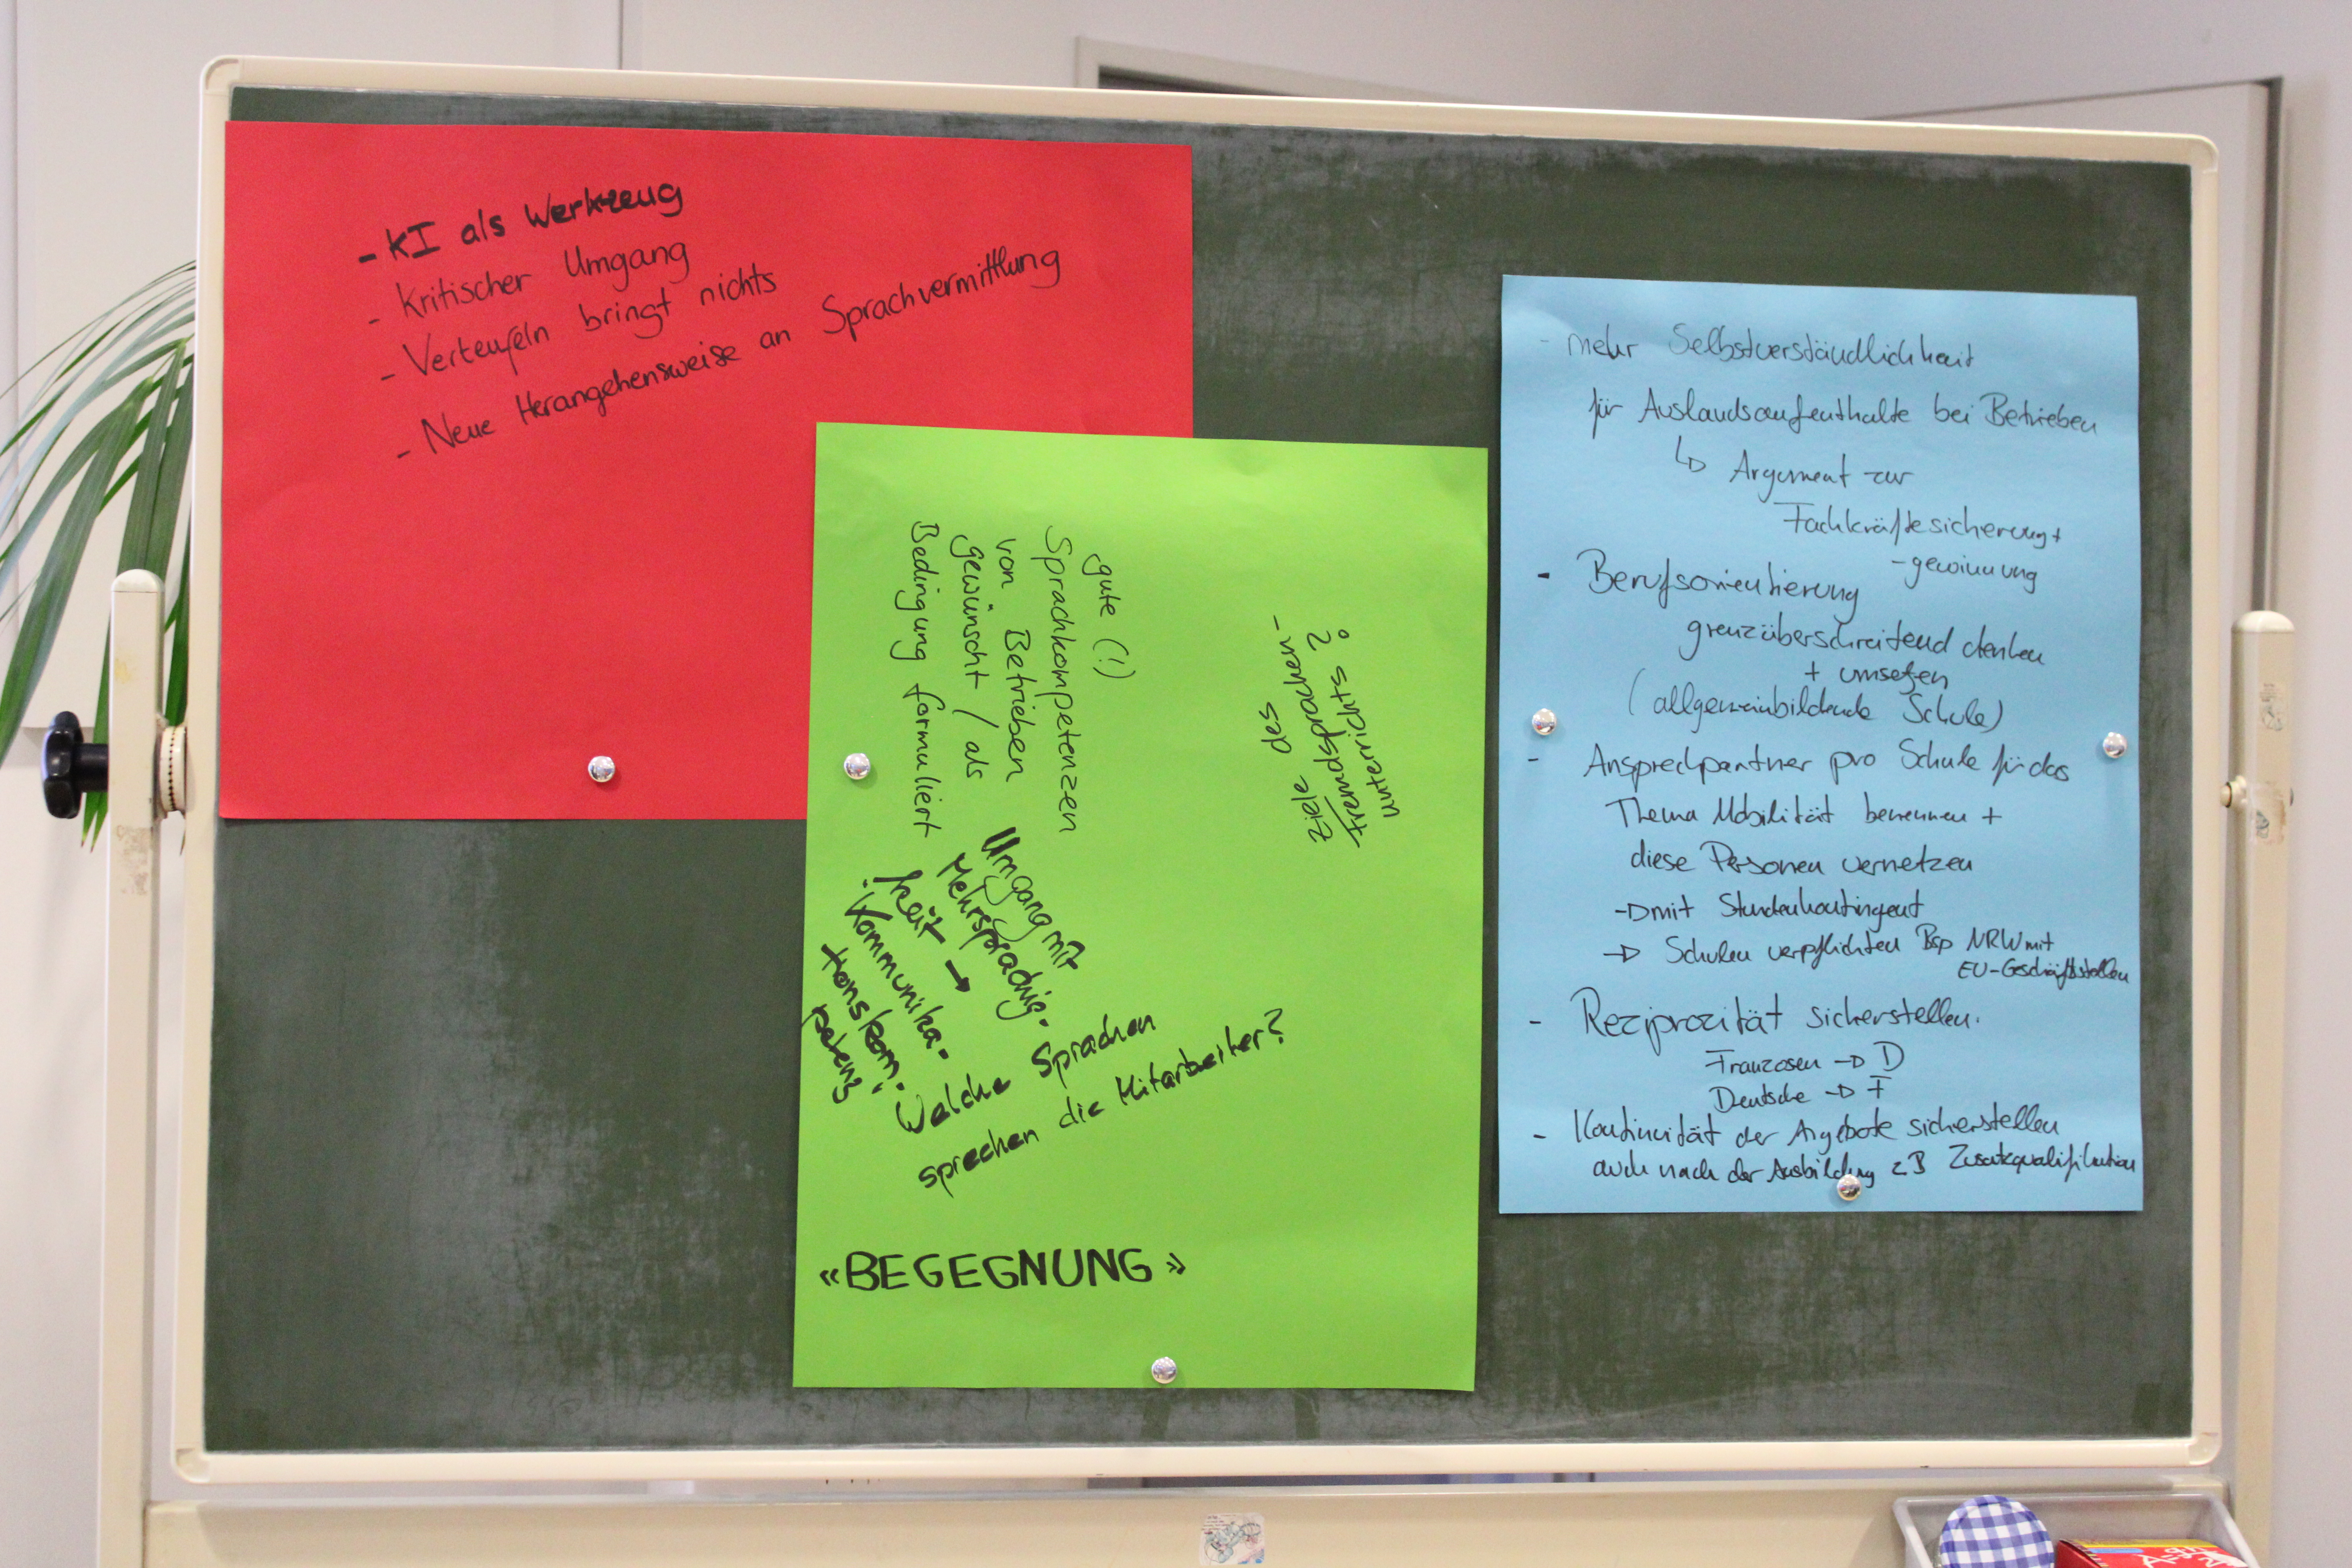 - KI als Werkzeug
- Kritischer Umgang
- Verteufeln bringt nichts
- Neue Herangehensweise an Sprachvermittlung
gute (!)
Sprachkompetenzen
von Betrieben
gewünscht / als
Bedingung formuliert
Ziele des
Fremdsprachen-
unterrichts?
Umgang mit
Mehrsprachig-
keit →
Kommunika-
tionskom-
petenz
Welche Sprachen
sprechen die Mitarbeiter?
«BEGEGNUNG»
- mehr Selbstverständlichkeit
für Auslandsaufenthalte bei Betrieben
↳ Argument zur
Fachkräftesicherung +
-gewinnung
- Berufsorientierung
grenzüberschreitend denken
+ umsetzen
(allgemeinbildende Schule)
- Ansprechpartner pro Schule für das
Thema Mobilität benennen +
diese Personen vernetzen
→ mit Stundenkontingent
→ Schulen verpflichten Bsp NRW mit
EU-Geschäftsstellen
- Reziprozität sicherstellen.
Franzosen → D
Deutsche → F
- Kontinuität der Angebote sicherstellen
auch nach der Ausbildung zB Zusatzqualifikation